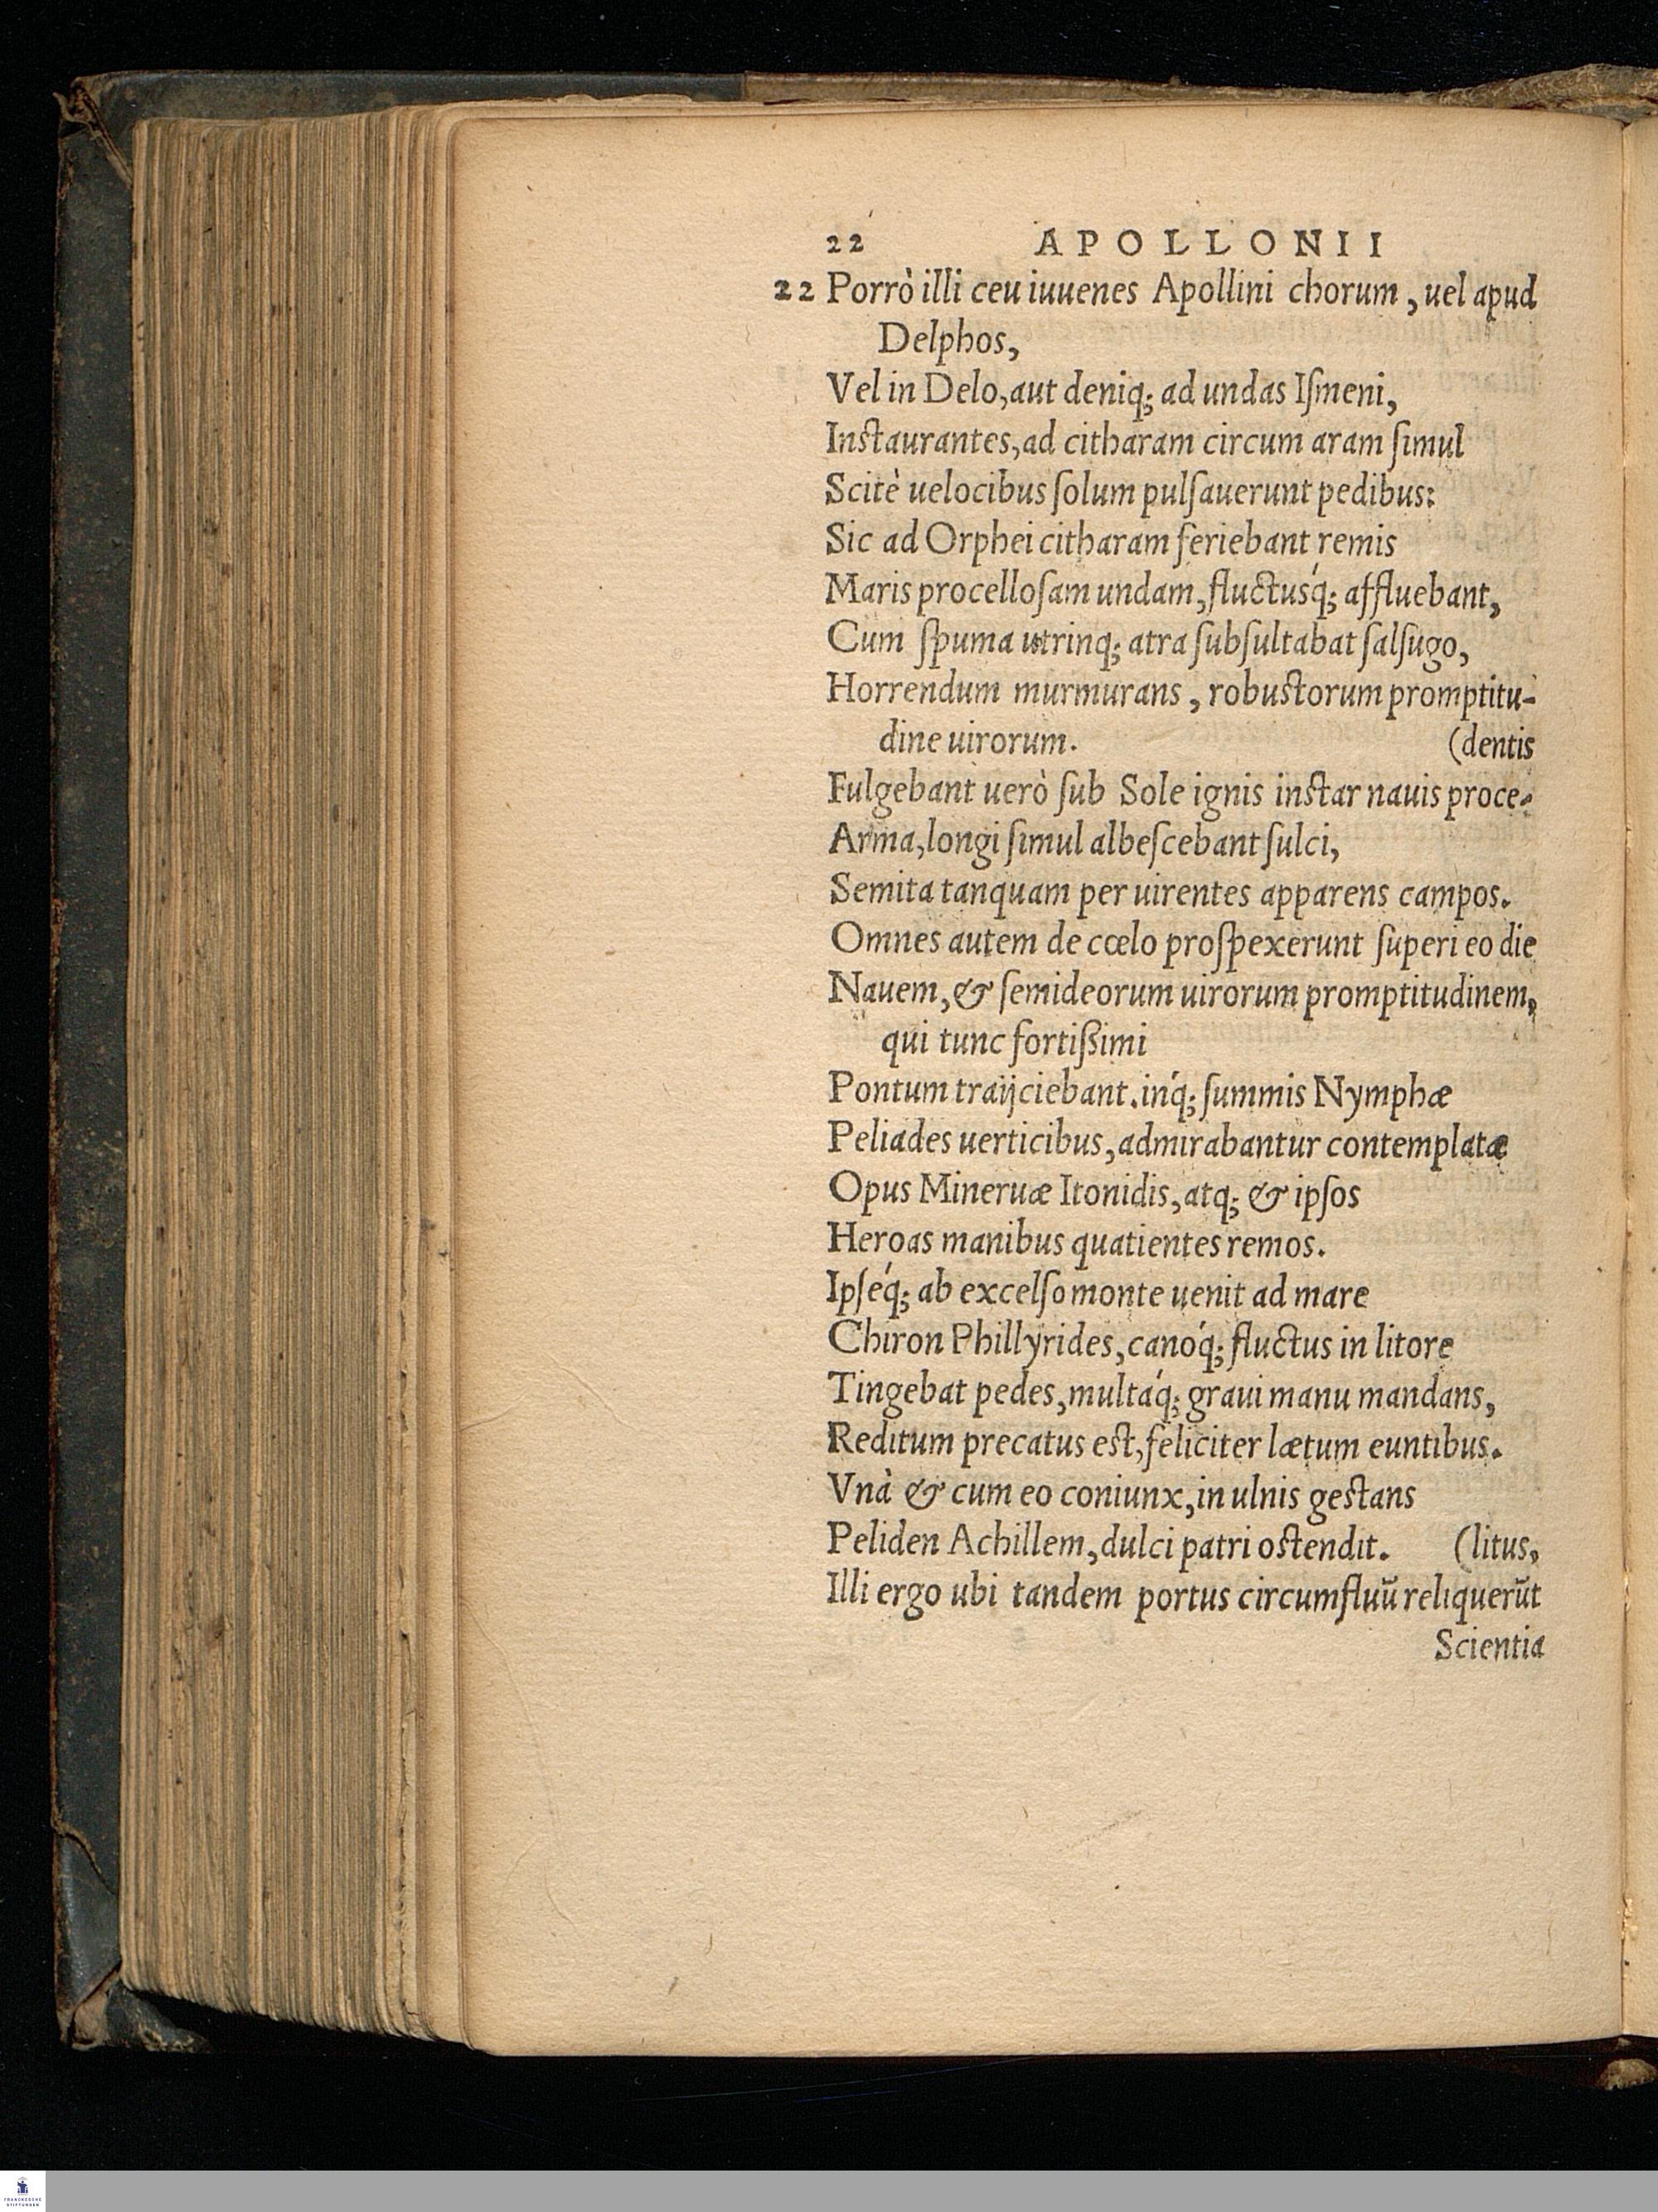 22 APOLLONII
22 Porrò illi ceu iuuenes Apollini chorum, uel apud
Delphos,
Vel in Delo, aut deniq; ad undas Iſmeni,
Instaurantes, ad citharam circum aram ſimul
Scitè uelocibus ſolum pulſauerunt pedibus:
Sic ad Orphei citharam feriebant remis
Maris procelloſam undam, fluctusq́; affluebant,
Cum ſpuma utrinq; atra ſubſultabat ſalſugo,
Horrendum murmurans, robustorum promptitu-
dine uirorum. (dentis
Fulgebant uerò ſub Sole ignis instar nauis proce-
Arma, longi ſimul albeſcebant ſulci,
Semita tanquam per uirentes apparens campos.
Omnes autem de cœlo proſpexerunt ſuperi eo die
Nauem, & ſemideorum uirorum promptitudinem,
qui tunc fortiſsimi
Pontum traijciebant. inq́; ſummis Nymphæ
Peliades uerticibus, admirabantur contemplatæ
Opus Mineruæ Itonidis, atq; & ipſos
Heroas manibus quatientes remos.
Ipſeq́; ab excelſo monte uenit ad mare
Chiron Phillyrides, canoq́; fluctus in litore
Tingebat pedes, multaq́; graui manu mandans,
Reditum precatus est, feliciter lætum euntibus.
Vnà & cum eo coniunx, in ulnis gestans
Peliden Achillem, dulci patri ostendit. (litus,
Illi ergo ubi tandem portus circumfluũ reliquerũt
Scientia
FRANCKESCHE
STIFTUNGEN